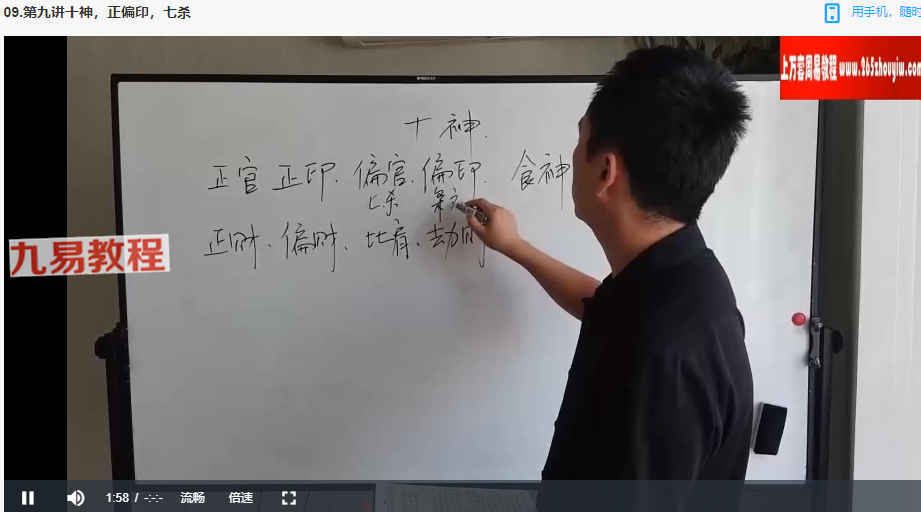 09.第九讲十神，正偏印，七杀
用手机，随时
上万套周易教程 www.265zhouyiw.com
十神.
正官 正印. 偏官. 偏印. 食神
七杀 枭
九易教程
正财. 偏财. 比肩. 劫财
1:58 / -:-:-
流畅
倍速